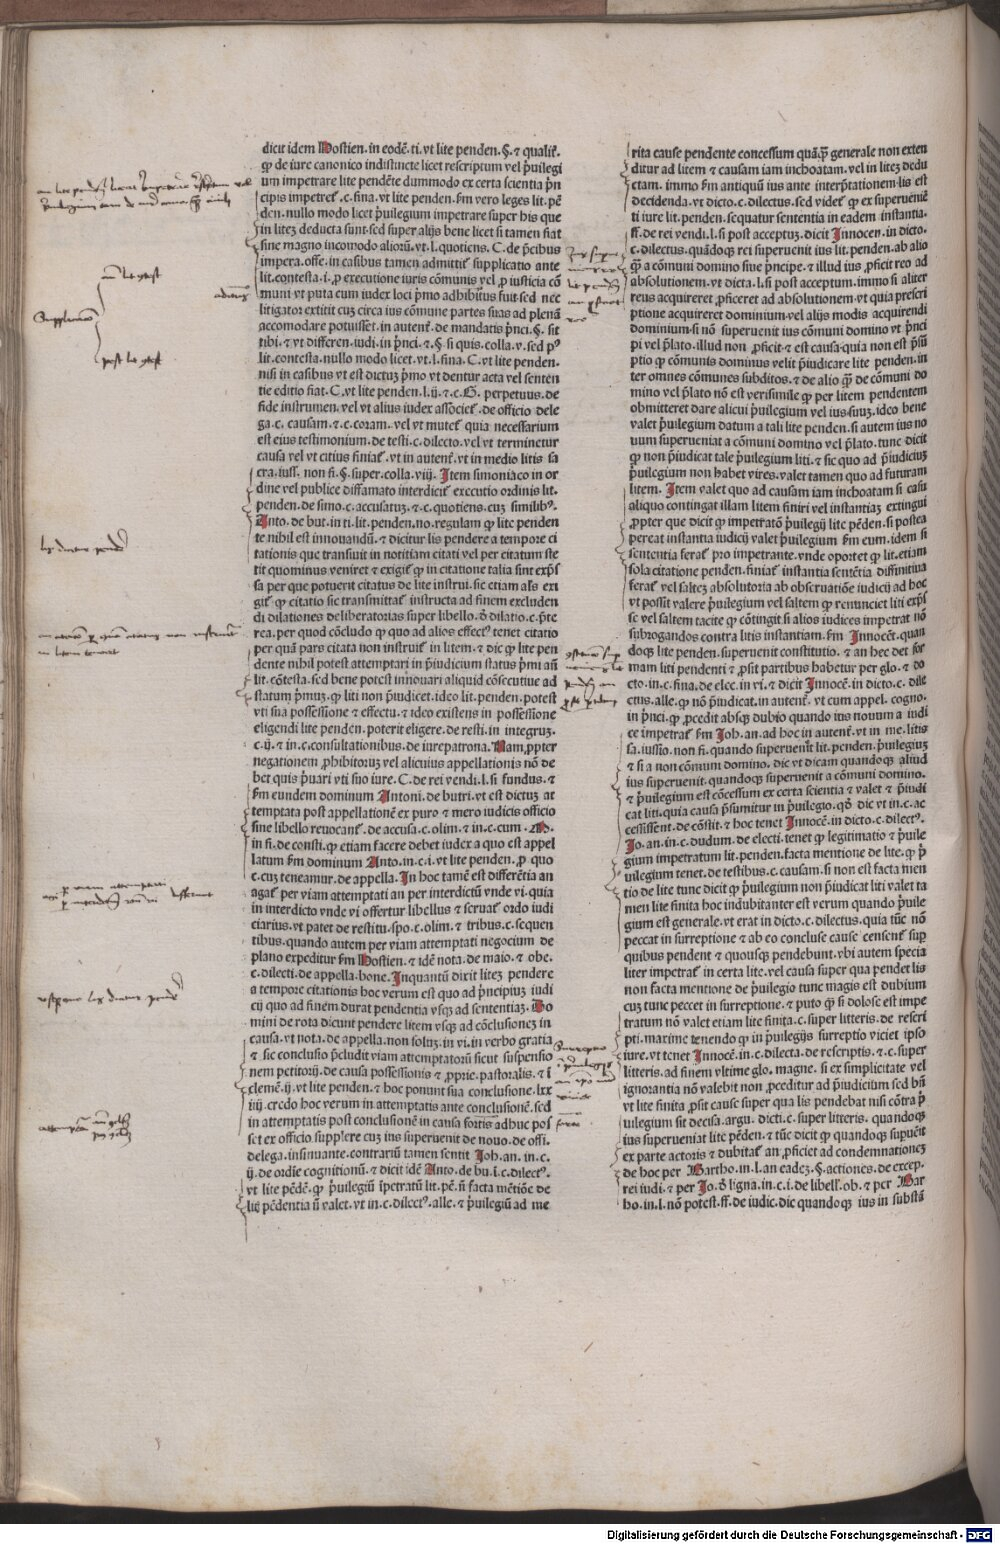 dicit idem Hostien. in eodē. ti. vt lite penden. §. ⁊ qualiť.
ꝙ de iure canonico indistincte licet rescriptum vel p̄uilegi
um impetrare lite pendēte dummodo ex certa scientia p̄n
cipis impetreť. c. fina. vt lite penden. ẜm vero leges lit. pē
den. nullo modo licet p̄uilegium impetrare super his que
in litez deducta sunt sed super alijs bene licet si tamen fiat
sine magno incōmodo alioꝝ. vt. l. quotiens. C. de p̄cibus
impera. offe. in casibus tamen admittiť supplicatio ante
lit. contesta. i. ꝓ executione iuris cōmunis vel ꝓ iusticia cō
muni vt puta cum iudex loci p̄mo adhibitus fuit sed nec
litigator extitit cuz circa ius cōmune partes suas ad plenā
accomodare potuisset. in autenť. de mandatis p̄nci. §. sit
tibi. ⁊ vt differen. iudi. in p̄nci. ⁊ §. si quis. colla. v. sed pꝰ
lit. contesta. nullo modo licet. vt. l. fina. C. vt lite penden.
nisi in casibus vt est dictuz p̄mo vt dentur acta vel senten
tie editio fiat. C. vt lite penden. l. ij. ⁊. c. G. perpetuus. de
fide instrumen. vel vt alius iudex associeť. de officio dele
ga. c. causam. ⁊. c. coram. vel vt muteť quia necessarium
est eius testimonium. de testi. c. dilecto. vel vt terminetur
causa vel vt citius finiať. vt in autenť. vt in medio litis sa
cra. iuss. non fi. §. super. colla. viij. Item simoniaco in or
dine vel publice diffamato interdiciť executio ordinis lit.
penden. de simo. c. accusatus. ⁊. c. quotiens. cuz similibꝰ.
Anto. de but. in ti. lit. penden. no. regulam ꝙ lite penden
te nihil est innouandū. ⁊ dicitur lis pendere a tempore ci
tationis que transiuit in notitiam citati vel per citatum ste
tit quominus veniret ⁊ exigiť ꝙ in citatione talia sint exp̄s
sa per que potuerit citatus de lite instrui. sic etiam als exi
giť ꝙ citatio sic transmittať instructa ad finem excluden
di dilationes deliberatorias super libello. d̄ dilatio. c. p̄te
rea. per quod cōcludo ꝙ quo ad alios effecť tenet citatio
per quā pars citata non instruiť in litem. ⁊ dic ꝙ lite pen
dente nihil potest attemptari in p̄iudicium status p̄mi añ
lit. cōtesta. sed bene potest innouari aliquid cōsecutiue ad
statum p̄muz. ꝙ liti non p̄iudicet. ideo lit. penden. potest
vti sua possessione ⁊ effectu. ⁊ ideo existens in possessione
eligendi lite penden. poterit eligere. de resti. in integruz.
c. ij. ⁊ in. c. consultationibus. de iurepatrona. Nam ꝓpter
negationem ꝓhibitoruz vel alicuius appellationis nō de
bet quis p̄uari vti suo iure. C. de rei vendi. l. si fundus. ⁊
ẜm eundem dominum Antoni. de butri. vt est dictuz at
temptata post appellationē ex puro ⁊ mero iudicis officio
sine libello reuocanť. de accusa. c. olim. ⁊ in. c. cum. M.
in fi. de consti. ꝙ etiam facere debet iudex a quo est appel
latum ẜm dominum Anto. in. c. i. vt lite penden. ꝓ quo
c. cuz teneamur. de appella. In hoc tamē est differētia an
agať per viam attemptati an per interdictū vnde vi. quia
in interdicto vnde vi offertur libellus ⁊ seruať ordo iudi
ciarius. vt patet de restitu. spo. c. olim. ⁊ tribus. c. sequen
tibus. quando autem per viam attemptati negocium de
plano expeditur ẜm Hostien. ⁊ idē nota. de maio. ⁊ obe.
c. dilecti. de appella. bone. Inquantū dixit litez pendere
a tempore citationis hoc verum est quo ad p̄ncipiuz iudi
cij quo ad finem durat pendentia vsqꝫ ad sententiaz. Do
mini de rota dicunt pendere litem vsqꝫ ad cōclusionez in
causa. vt nota. de appella. non soluz. in vi. in verbo gratia
⁊ sic conclusio p̄cludit viam attemptatoꝝ sicut suspensio
nem petitorij. de causa possessionis ⁊ ꝓprie. pastoralis. ⁊ ī
clemē. ij. vt lite penden. ⁊ hoc ponunt sua conclusione. lxx
iiij. credo hoc verum in attemptatis ante conclusionē. sed
in attemptatis post conclusionē in causa fortis adhuc pos
set ex officio supplere cuz ius superuenit de nouo. de offi.
delega. insinuante. contrariū tamen sentit Joh. an. in. c.
ij. de ordīe cognitionū. ⁊ dicit idē Anto. de bu. i. c. dilectꝰ.
vt lite pēdē. ꝙ p̄uilegiū īpetratū lit. pē. ñ facta mētiōe de
litꝫ pēdentia ñ valet. vt in. c. dilectꝰ. alle. ⁊ p̄uilegiū ad me
rita cause pendente concessum quāqꝫ generale non exten
ditur ad litem ⁊ causam iam inchoatam. vel in litez dedu
ctam. immo ẜm antiquū ius ante interp̄tationem lis est
decidenda. vt dicto. c. dilectus. sed videť ꝙ ex superueniē
ti iure lit. penden. sequatur sententia in eadem instantia.
ff. de rei vendi. l. si post acceptuz. dicit Innocen. in dicto.
c. dilectus. quādoqꝫ rei superuenit ius lit. penden. ab alio
ꝙ a cōmuni domino siue p̄ncipe. ⁊ illud ius ꝓficit reo ad
absolutionem. vt dicta. l. si post acceptum. immo si aliter
reus acquireret ꝓficeret ad absolutionem. vt quia prescri
ptione acquireret dominium. vel alijs modis acquirendi
dominium. si nō superuenit ius cōmuni domino vt p̄nci
pi vel p̄lato. illud non ꝓficit. ⁊ est causa quia non est p̄sū
ptio ꝙ cōmunis dominus velit p̄iudicare lite penden. in
ter omnes cōmunes subditos. ⁊ de alio ꝙ de cōmuni do
mino vel p̄lato nō est verisimile ꝙ per litem pendentem
obmitteret dare alicui p̄uilegium vel ius suuz. ideo bene
valet p̄uilegium datum a tali lite penden. si autem ius no
uum superueniat a cōmuni domino vel p̄lato. tunc dicit
ꝙ non p̄iudicat tale p̄uilegium liti. ⁊ sic quo ad p̄iudiciuz
p̄uilegium non habet vires. valet tamen quo ad futuram
litem. Item valet quo ad causam iam inchoatam si casu
aliquo contingat illam litem finiri vel instantiaz extingui
ꝓpter que dicit ꝙ impetratō p̄uilegij lite pēden. si postea
pereat instantia iudicij valet p̄uilegium ẜm eum. idem si
sententia ferať pro impetrante. vnde oportet ꝙ lit. etiam
sola citatione penden. finiať instantia sentētia diffinitiua
ferať vel saltez absolutoria ab obseruatiōe iudicij ad hoc
vt possit valere p̄uilegium vel saltem ꝙ renunciet liti exp̄s
se vel saltem tacite ꝙ cōtingit si alios iudices impetrat nō
subrogandos contra litis instantiam. ẜm Innocēt. quan
doqꝫ lite penden. superuenit constitutio. ⁊ an hec det for
mam liti pendenti ⁊ ꝓsit partibus habetur per glo. ⁊ do
cto. in. c. fina. de elec. in vi. ⁊ dicit Innocē. in dicto. c. dile
ctus. alle. ꝙ nō p̄iudicat. in autenť. vt cum appel. cogno.
in p̄nci. ꝙ ꝓcedit absqꝫ dubio quando ius nouum a iudi
ce impetrať ẜm Joh. an. ad hoc in autenť. vt in me. litis
sa. iussio. non fi. quando superueniť lit. penden. p̄uilegiuz
⁊ si a non cōmuni domino. dic vt dicam quandoqꝫ aliud
ius superuenit. quandoqꝫ superuenit a cōmuni domino.
⁊ p̄uilegium est cōcessum ex certa scientia ⁊ valet ⁊ p̄iudi
cat liti. quia causa p̄sumitur in p̄uilegio. qꝫ dic vt in. c. ac
cessissent. de cōstit. ⁊ hoc tenet Innocē. in dicto. c. dilectꝰ.
Jo. an. in. c. dudum. de electi. tenet ꝙ legitimatio ⁊ p̄uile
gium impetratum lit. penden. facta mentione de lite. ꝙ p̄
uilegium tenet. de testibus. c. causam. si non est facta men
tio de lite tunc dicit ꝙ p̄uilegium non p̄iudicat liti valet ta
men lite finita hoc indubitanter est verum quando p̄uile
gium est generale. vt erat in dicto. c. dilectus. quia tūc nō
peccat in surreptione ⁊ ab eo concluse cause censenť sup̱
quibus pendent ⁊ quousqꝫ pendebunt. vbi autem specia
liter impetrať in certa lite. vel causa super qua pendet lis
non facta mentione de p̄uilegio tunc magis est dubium
cuz tunc peccet in surreptione. ⁊ puto ꝙ si dolose est impe
tratum nō valet etiam lite finita. c. super litteris. de rescri
pti. maxime tenendo ꝙ in p̄uilegijs surreptio viciet ipso
iure. vt tenet Innocē. in. c. dilecta. de rescriptis. ⁊. c. super
litteris. ad finem vltime glo. magne. si ex simplicitate vel
ignorantia nō valebit non ꝓceditur ad p̄iudicium sed bñ
vt lite finita ꝓsit cause super qua lis pendebat nisi cōtra p̄
uilegium sit decisa. argu. dicti. c. super litteris. quandoqꝫ
ius superueniat lite pēden. ⁊ tūc dicit ꝙ quandoqꝫ supuēit
ex parte actoris ⁊ dubitať an ꝓficiet ad condemnationez
de hoc per Bartho. in. l. an eadez. §. actiones. de excep.
rei iudi. ⁊ per Jo. d̄ ligna. in. c. i. de libell. ob. ⁊ per Bar
tho. in. l. nō potest. ff. de iudic. dic quandoqꝫ ius in substā
Digitalisierung gefördert durch die Deutsche Forschungsgemeinschaft - DFG